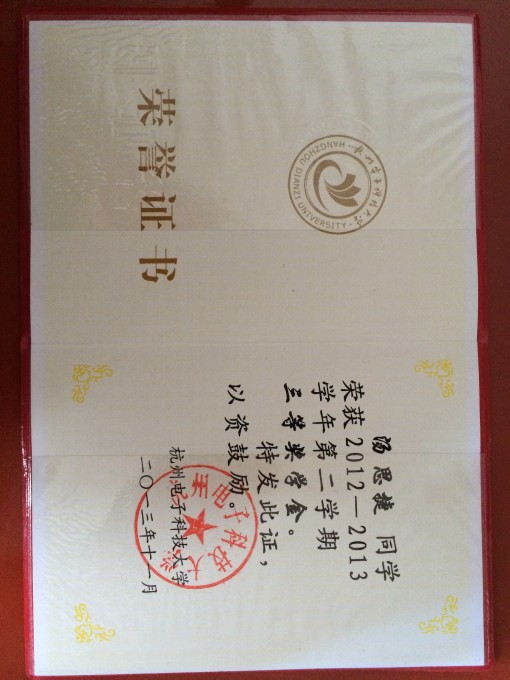 荣誉证书
杭州电子科技大学
HANGZHOU DIANZI UNIVERSITY
汤思捷 同学
荣获2012—2013
学年第二学期
三等奖学金。
特发此证，
以资鼓励。
杭州电子科技大学
二〇一三年十一月